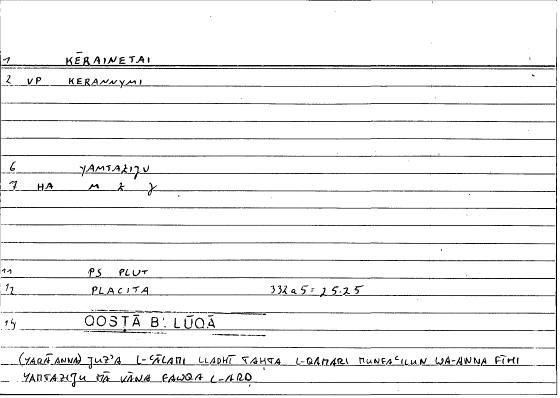 1 KĒRAINETAI
2 VP KERANNYMI
6 YAMTAZIǦU
7 HA M Z Ǧ
11 PS PLUT
12 PLACITA 332a5 = 25.25
14 QOSṬĀ B. LŪQĀ
(YARĀ ANNA) ǦUZʾA L-ʿĀLAMI LLADHĪ TAḤTA L-QAMARI MUNFAʿILUN WA-ANNA FĪHI
YAMTAZIǦU MĀ KĀNA FAWQA L-ARḌ